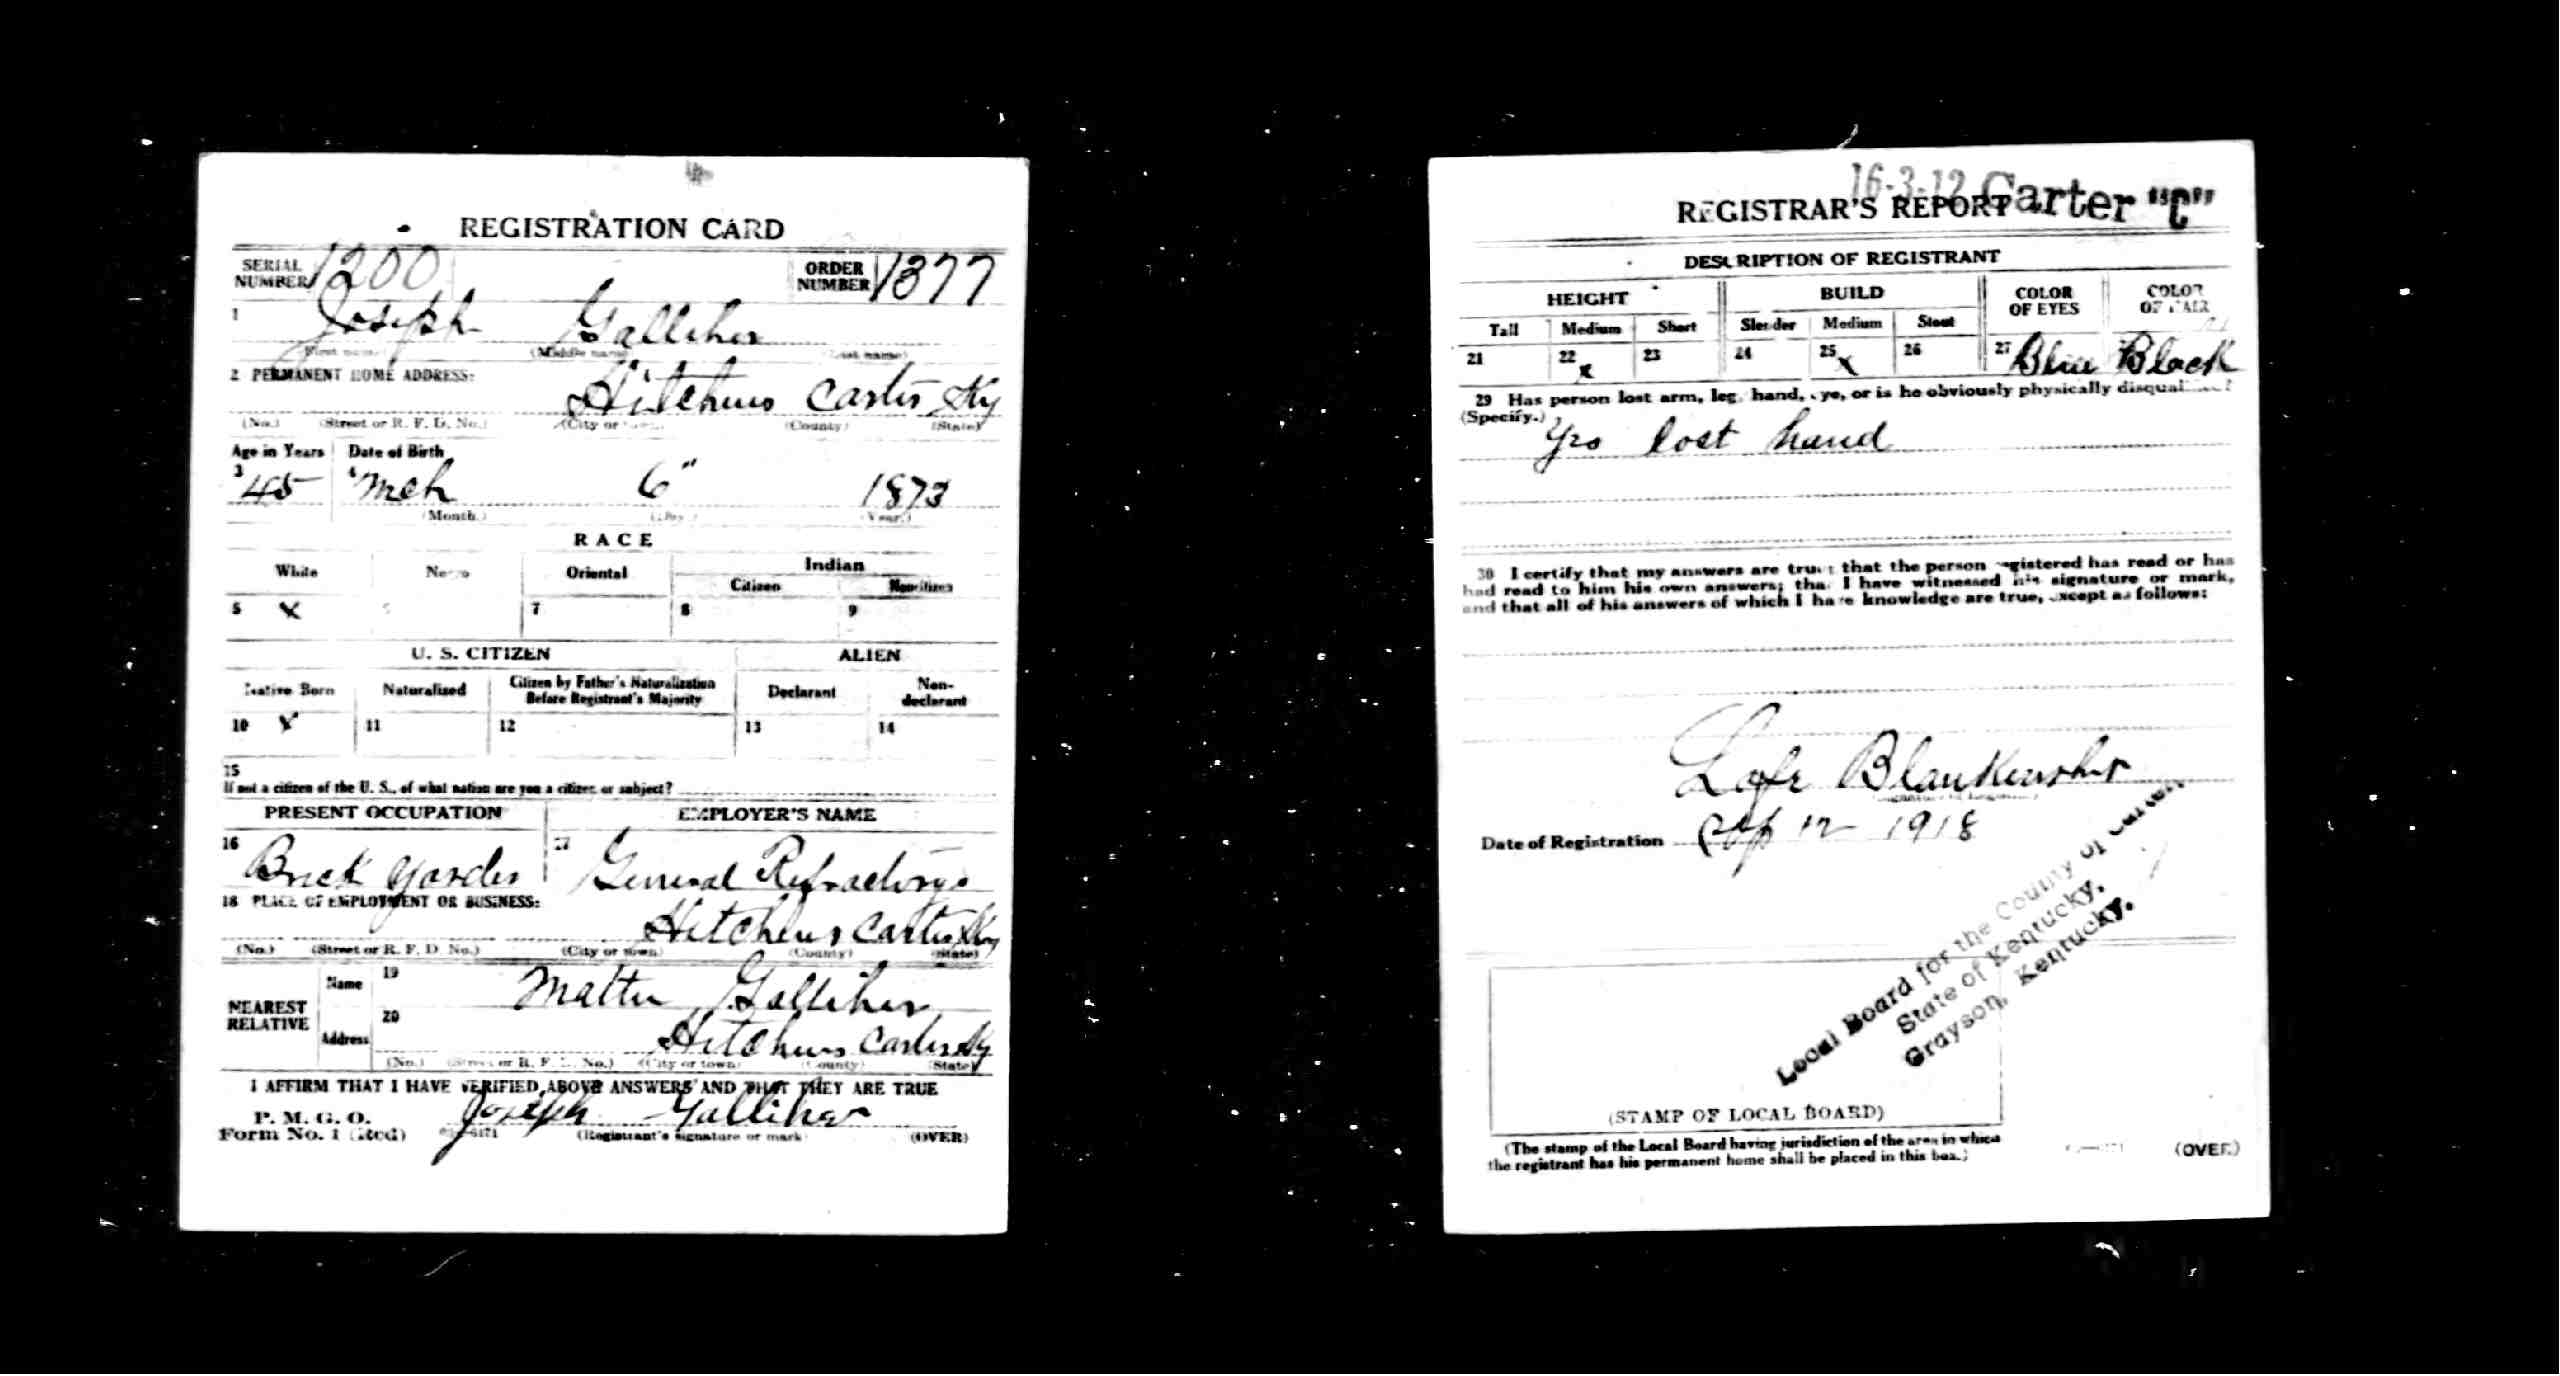 REGISTRATION CARD
SERIAL NUMBER 1200 ORDER NUMBER 1377
1 Joseph Galliher
(First name) (Middle name) (Last name)
2 PERMANENT HOME ADDRESS:
Hitchins Carter Ky
(No.) (Street or R. F. D. No.) (City or town) (County) (State)
Age in Years Date of Birth
3 45 4 Mch 6" 1873
(Month.) (Day.) (Year.)
RACE
White Negro Oriental Indian
Citizen Noncitizen
5 X 6 7 8 9
U. S. CITIZEN ALIEN
Native Born Naturalized Citizen by Father's Naturalization Before Registrant's Majority Declarant Non-declarant
10 X 11 12 13 14
15
If not a citizen of the U. S., of what nation are you a citizen or subject?
PRESENT OCCUPATION EMPLOYER'S NAME
16 Brick Yarder 17 General Refractorys
18 PLACE OF EMPLOYMENT OR BUSINESS:
Hitchens Carter Ky
(No.) (Street or R. F. D. No.) (City or town) (County) (State)
NEAREST RELATIVE
Name 19 Mattie Galliher
Address 20 Hitchins Carter Ky
(No.) (Street or R. F. D. No.) (City or town) (County) (State)
I AFFIRM THAT I HAVE VERIFIED ABOVE ANSWERS AND THAT THEY ARE TRUE
P. M. G. O.
Form No. 1 (Red) Joseph Galliher
(Registrant's signature or mark) (OVER)
16-3-12 Carter "C"
REGISTRAR'S REPORT
DESCRIPTION OF REGISTRANT
HEIGHT BUILD COLOR OF EYES COLOR OF HAIR
Tall Medium Short Slender Medium Stout
21 22 X 23 24 25 X 26 27 Blue Black
29 Has person lost arm, leg, hand, eye, or is he obviously physically disqualified?
(Specify.) Yes lost hand
30 I certify that my answers are true; that the person registered has read or has
had read to him his own answers; that I have witnessed his signature or mark,
and that all of his answers of which I have knowledge are true, except as follows:
Lafe Blankenship
Date of Registration Sep 12 1918
Local Board for the County of Carter
State of Kentucky,
Grayson, Kentucky.
(STAMP OF LOCAL BOARD)
(The stamp of the Local Board having jurisdiction of the area in which
the registrant has his permanent home shall be placed in this box.)
(OVER)